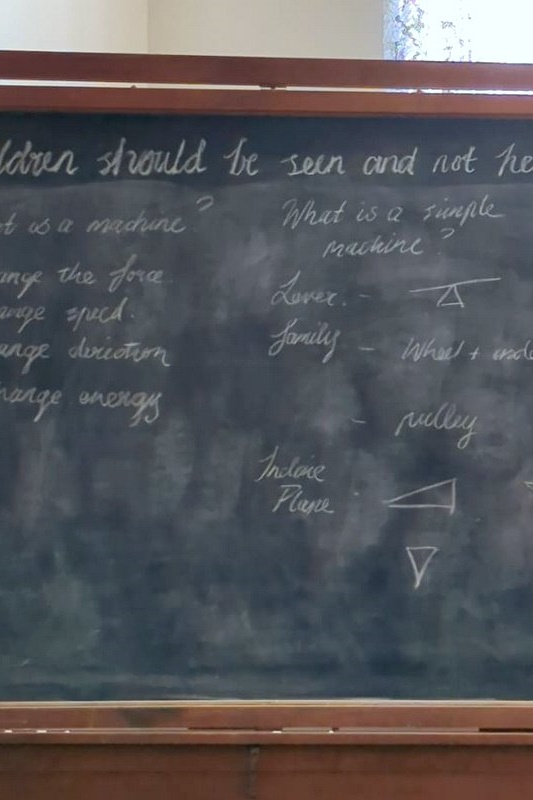 ldren should be seen and not he
t is a machine?
ange the force
ange speed.
ange direction
hange energy
What is a simple
machine?
Lever. -
family - Wheel +
- pulley
Plane